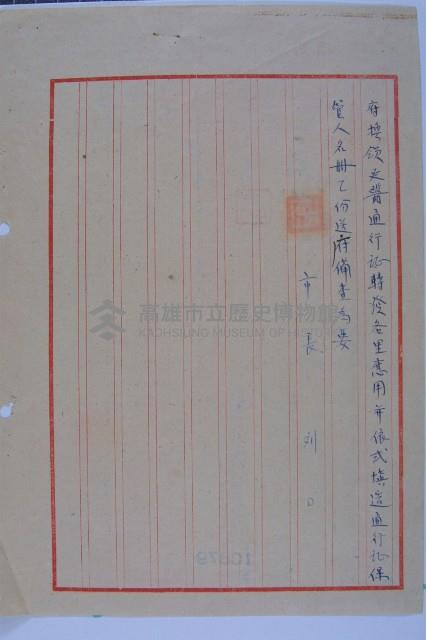 府換領文醫通行証轉發各里應用並依式填造通行証保
管人名冊乙份送府備查為要
市長 刘口
高雄市立歷史博物館
KAOHSIUNG MUSEUM OF HISTORY